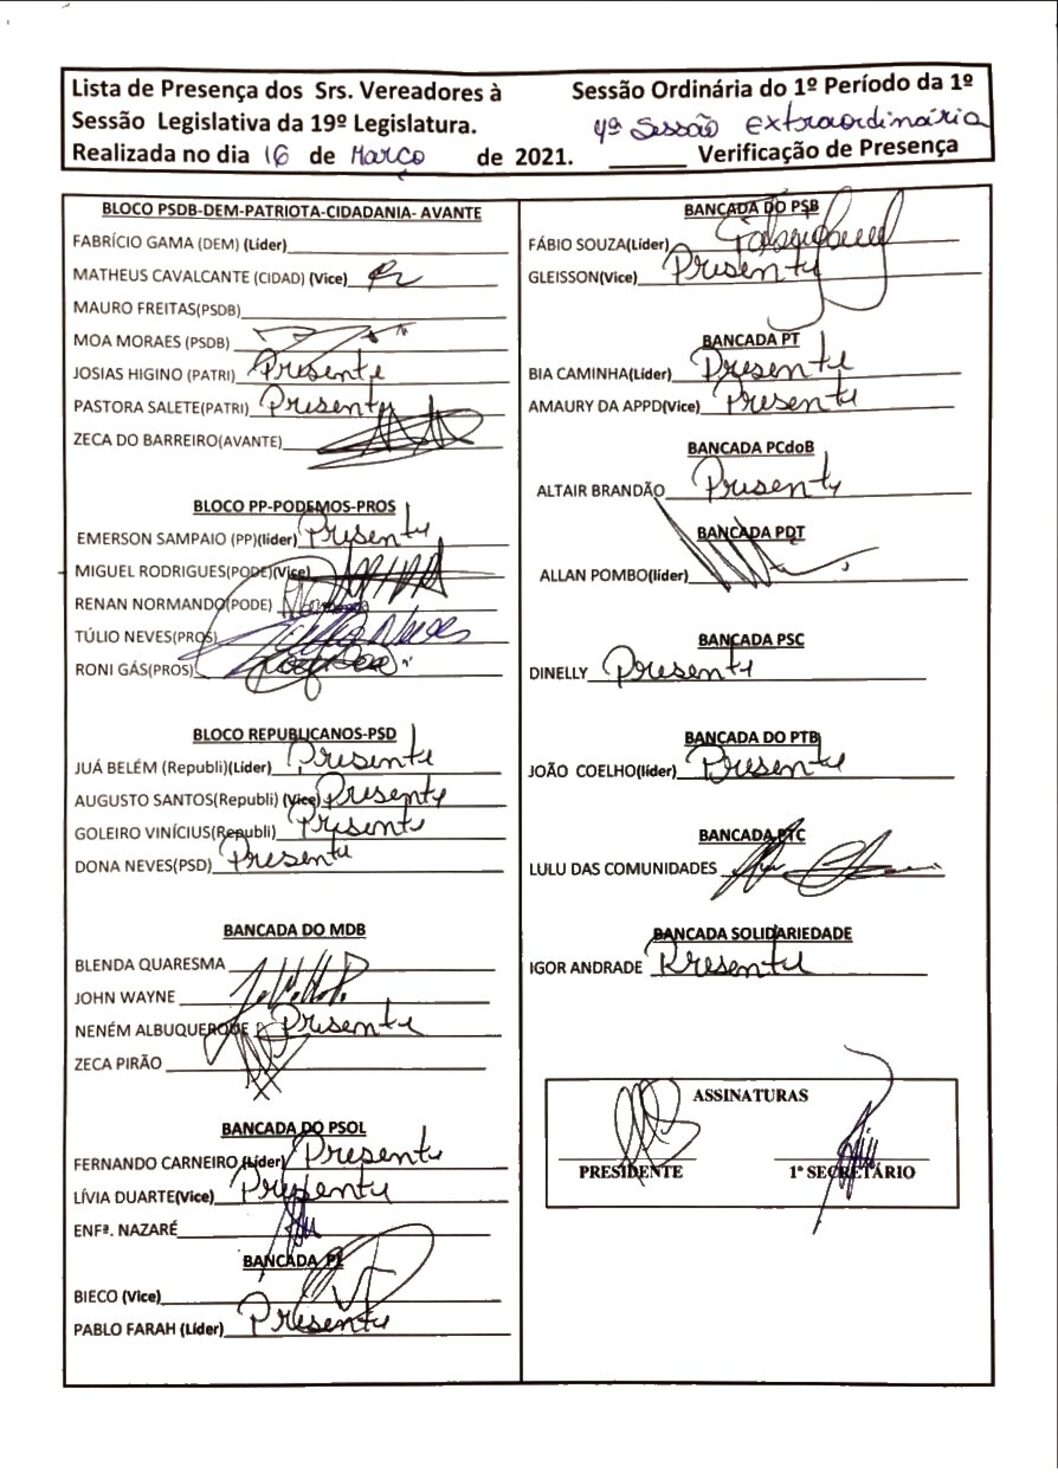 Lista de Presença dos Srs. Vereadores à Sessão Ordinária do 1º Período da 1º
Sessão Legislativa da 19º Legislatura. 4ª Sessão extraordinária
Realizada no dia 16 de Março de 2021. ______ Verificação de Presença
BLOCO PSDB-DEM-PATRIOTA-CIDADANIA- AVANTE
FABRÍCIO GAMA (DEM) (Líder)
MATHEUS CAVALCANTE (CIDAD) (Vice)
MAURO FREITAS(PSDB)
MOA MORAES (PSDB)
JOSIAS HIGINO (PATRI) Presente
PASTORA SALETE(PATRI) Presente
ZECA DO BARREIRO(AVANTE)
BLOCO PP-PODEMOS-PROS
EMERSON SAMPAIO (PP)(líder) Presente
MIGUEL RODRIGUES(PODE)(Vice)
RENAN NORMANDO(PODE)
TÚLIO NEVES(PROS) Túlio Neves
RONI GÁS(PROS)
BLOCO REPUBLICANOS-PSD
JUÁ BELÉM (Republi)(Líder) Presente
AUGUSTO SANTOS(Republi) (Vice) Presente
GOLEIRO VINÍCIUS(Republi) Presente
DONA NEVES(PSD) Presente
BANCADA DO MDB
BLENDA QUARESMA
JOHN WAYNE
NENÉM ALBUQUERQUE Presente
ZECA PIRÃO
BANCADA DO PSOL
FERNANDO CARNEIRO (Líder) Presente
LÍVIA DUARTE(Vice) Presente
ENFª. NAZARÉ
BANCADA PL
BIECO (Vice)
PABLO FARAH (Líder) Presente
BANCADA DO PSB
FÁBIO SOUZA(Líder)
GLEISSON(Vice) Presente
BANCADA PT
BIA CAMINHA(Líder) Presente
AMAURY DA APPD(Vice) Presente
BANCADA PCdoB
ALTAIR BRANDÃO Presente
BANCADA PDT
ALLAN POMBO(líder)
BANCADA PSC
DINELLY Presente
BANCADA DO PTB
JOÃO COELHO(líder) Presente
BANCADA PTC
LULU DAS COMUNIDADES
BANCADA SOLIDARIEDADE
IGOR ANDRADE Presente
ASSINATURAS
PRESIDENTE 1º SECRETÁRIO